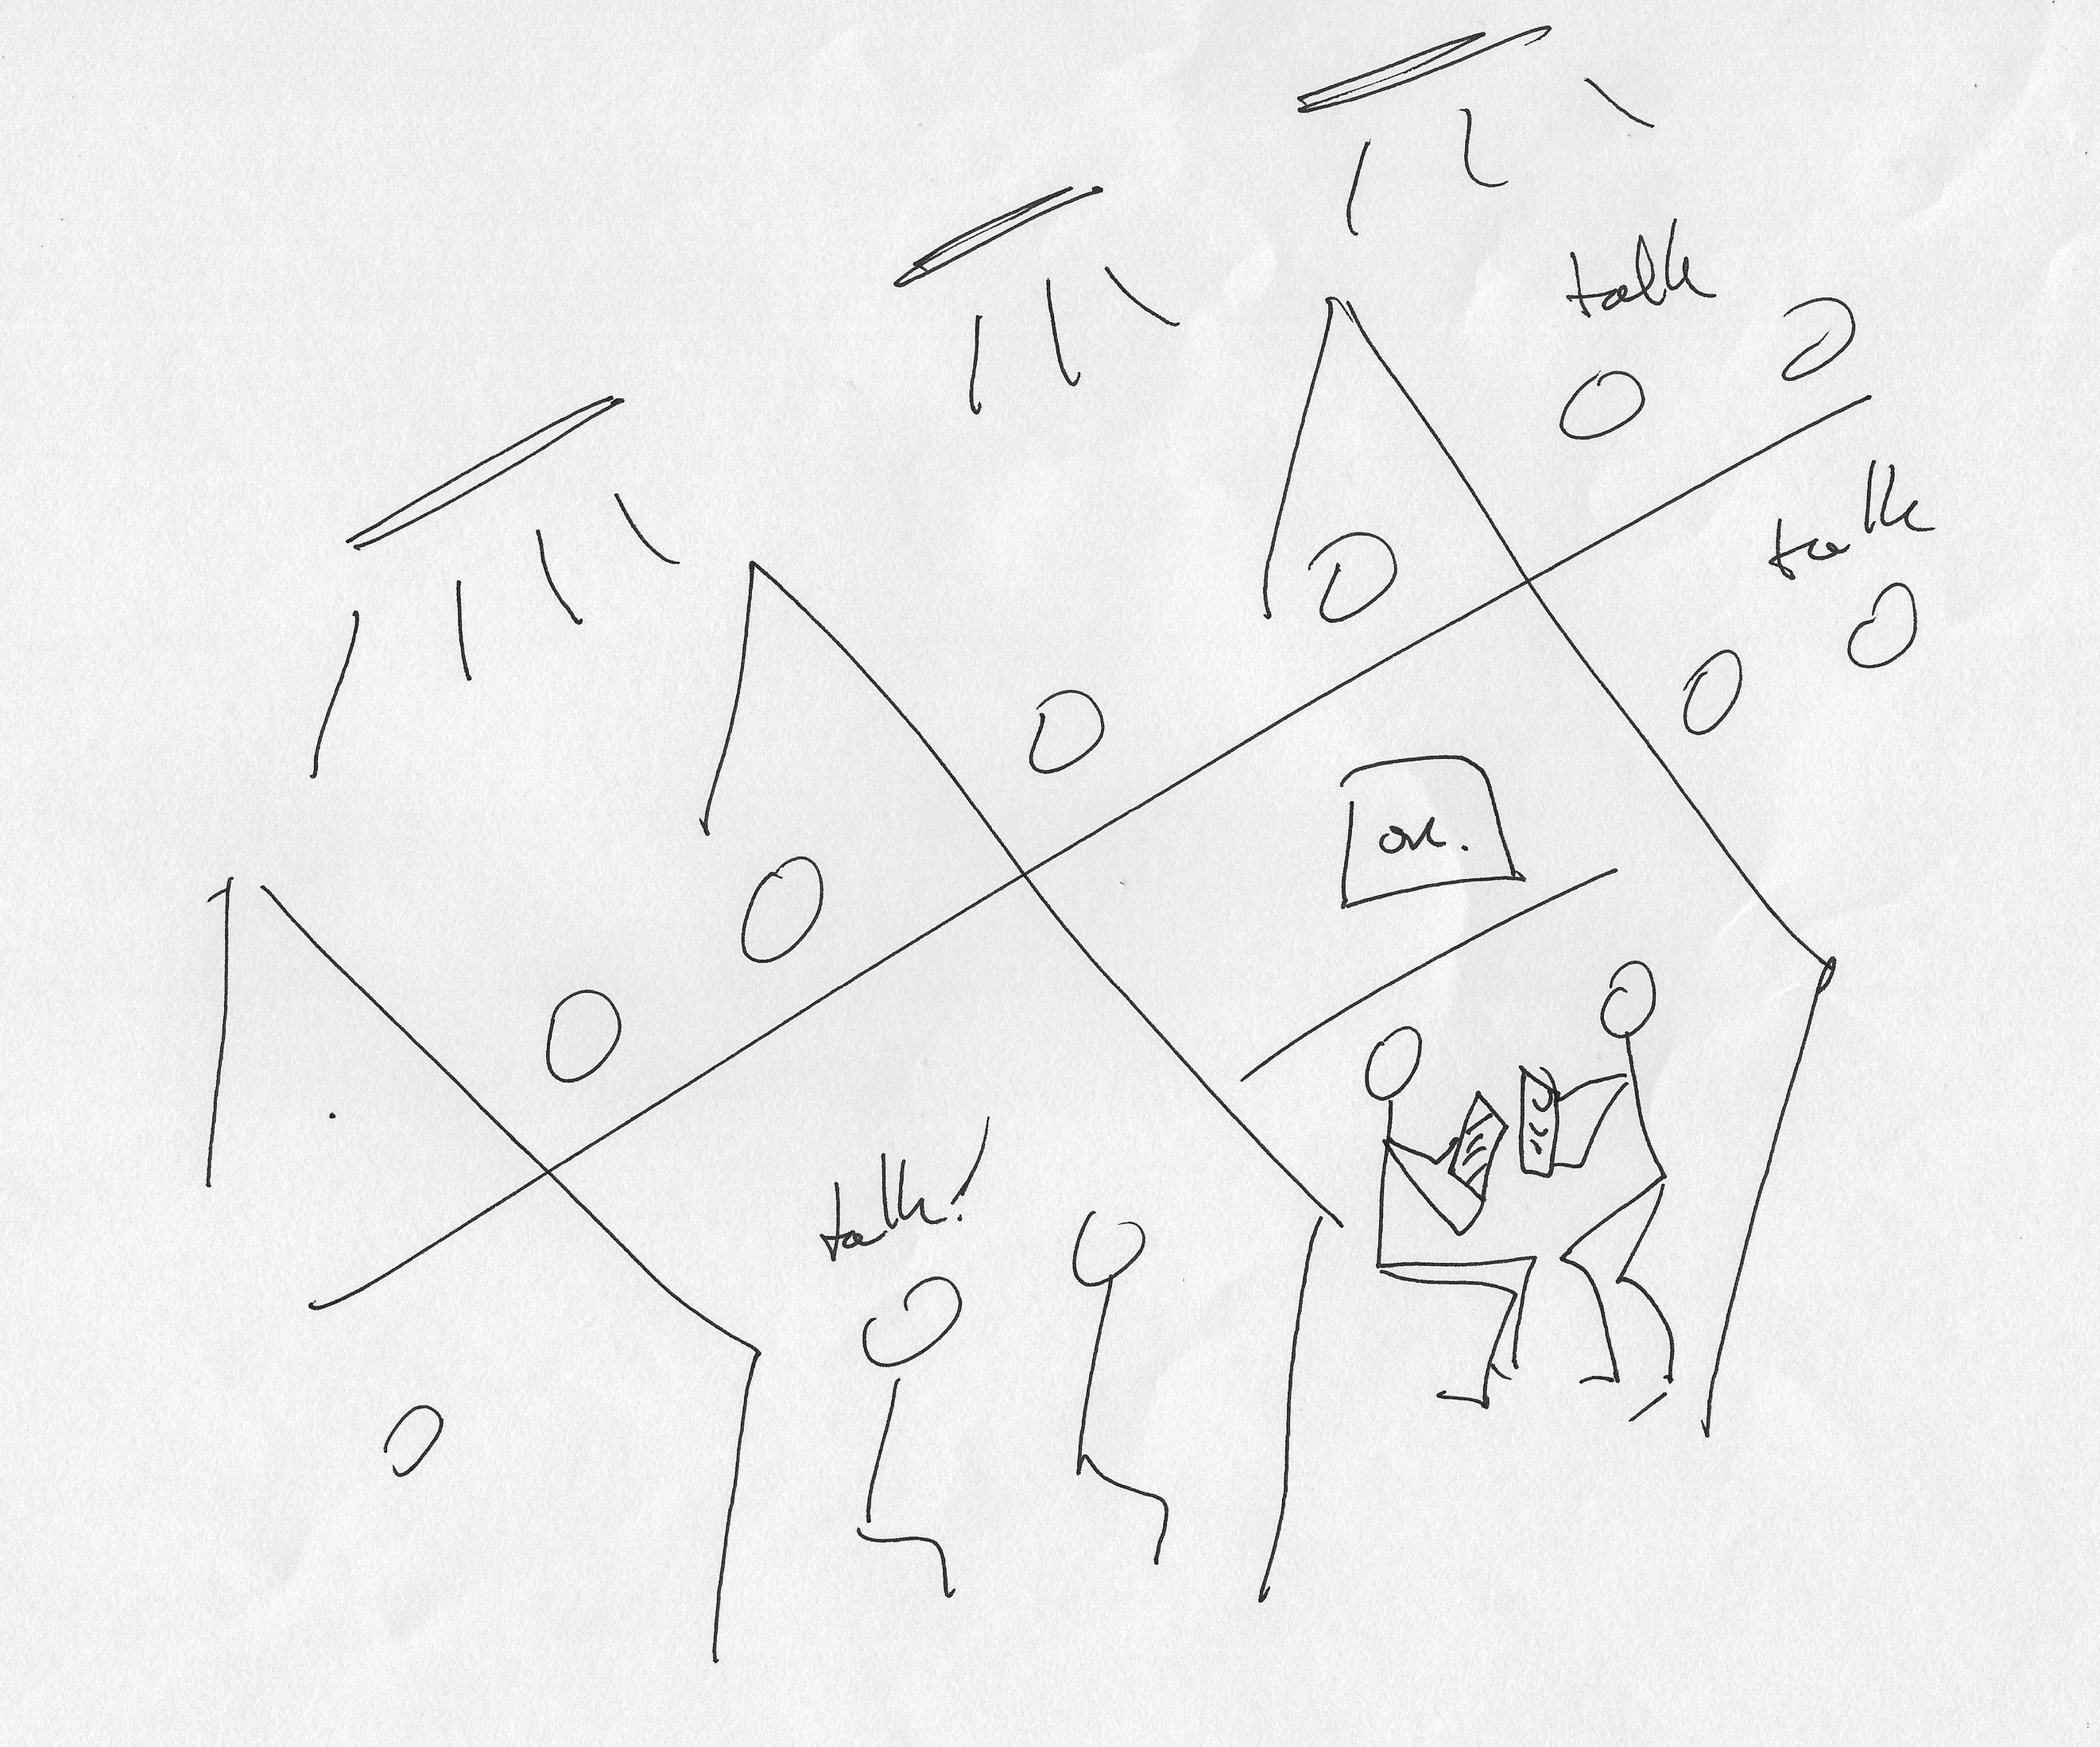 talk
talk
on.
talk!